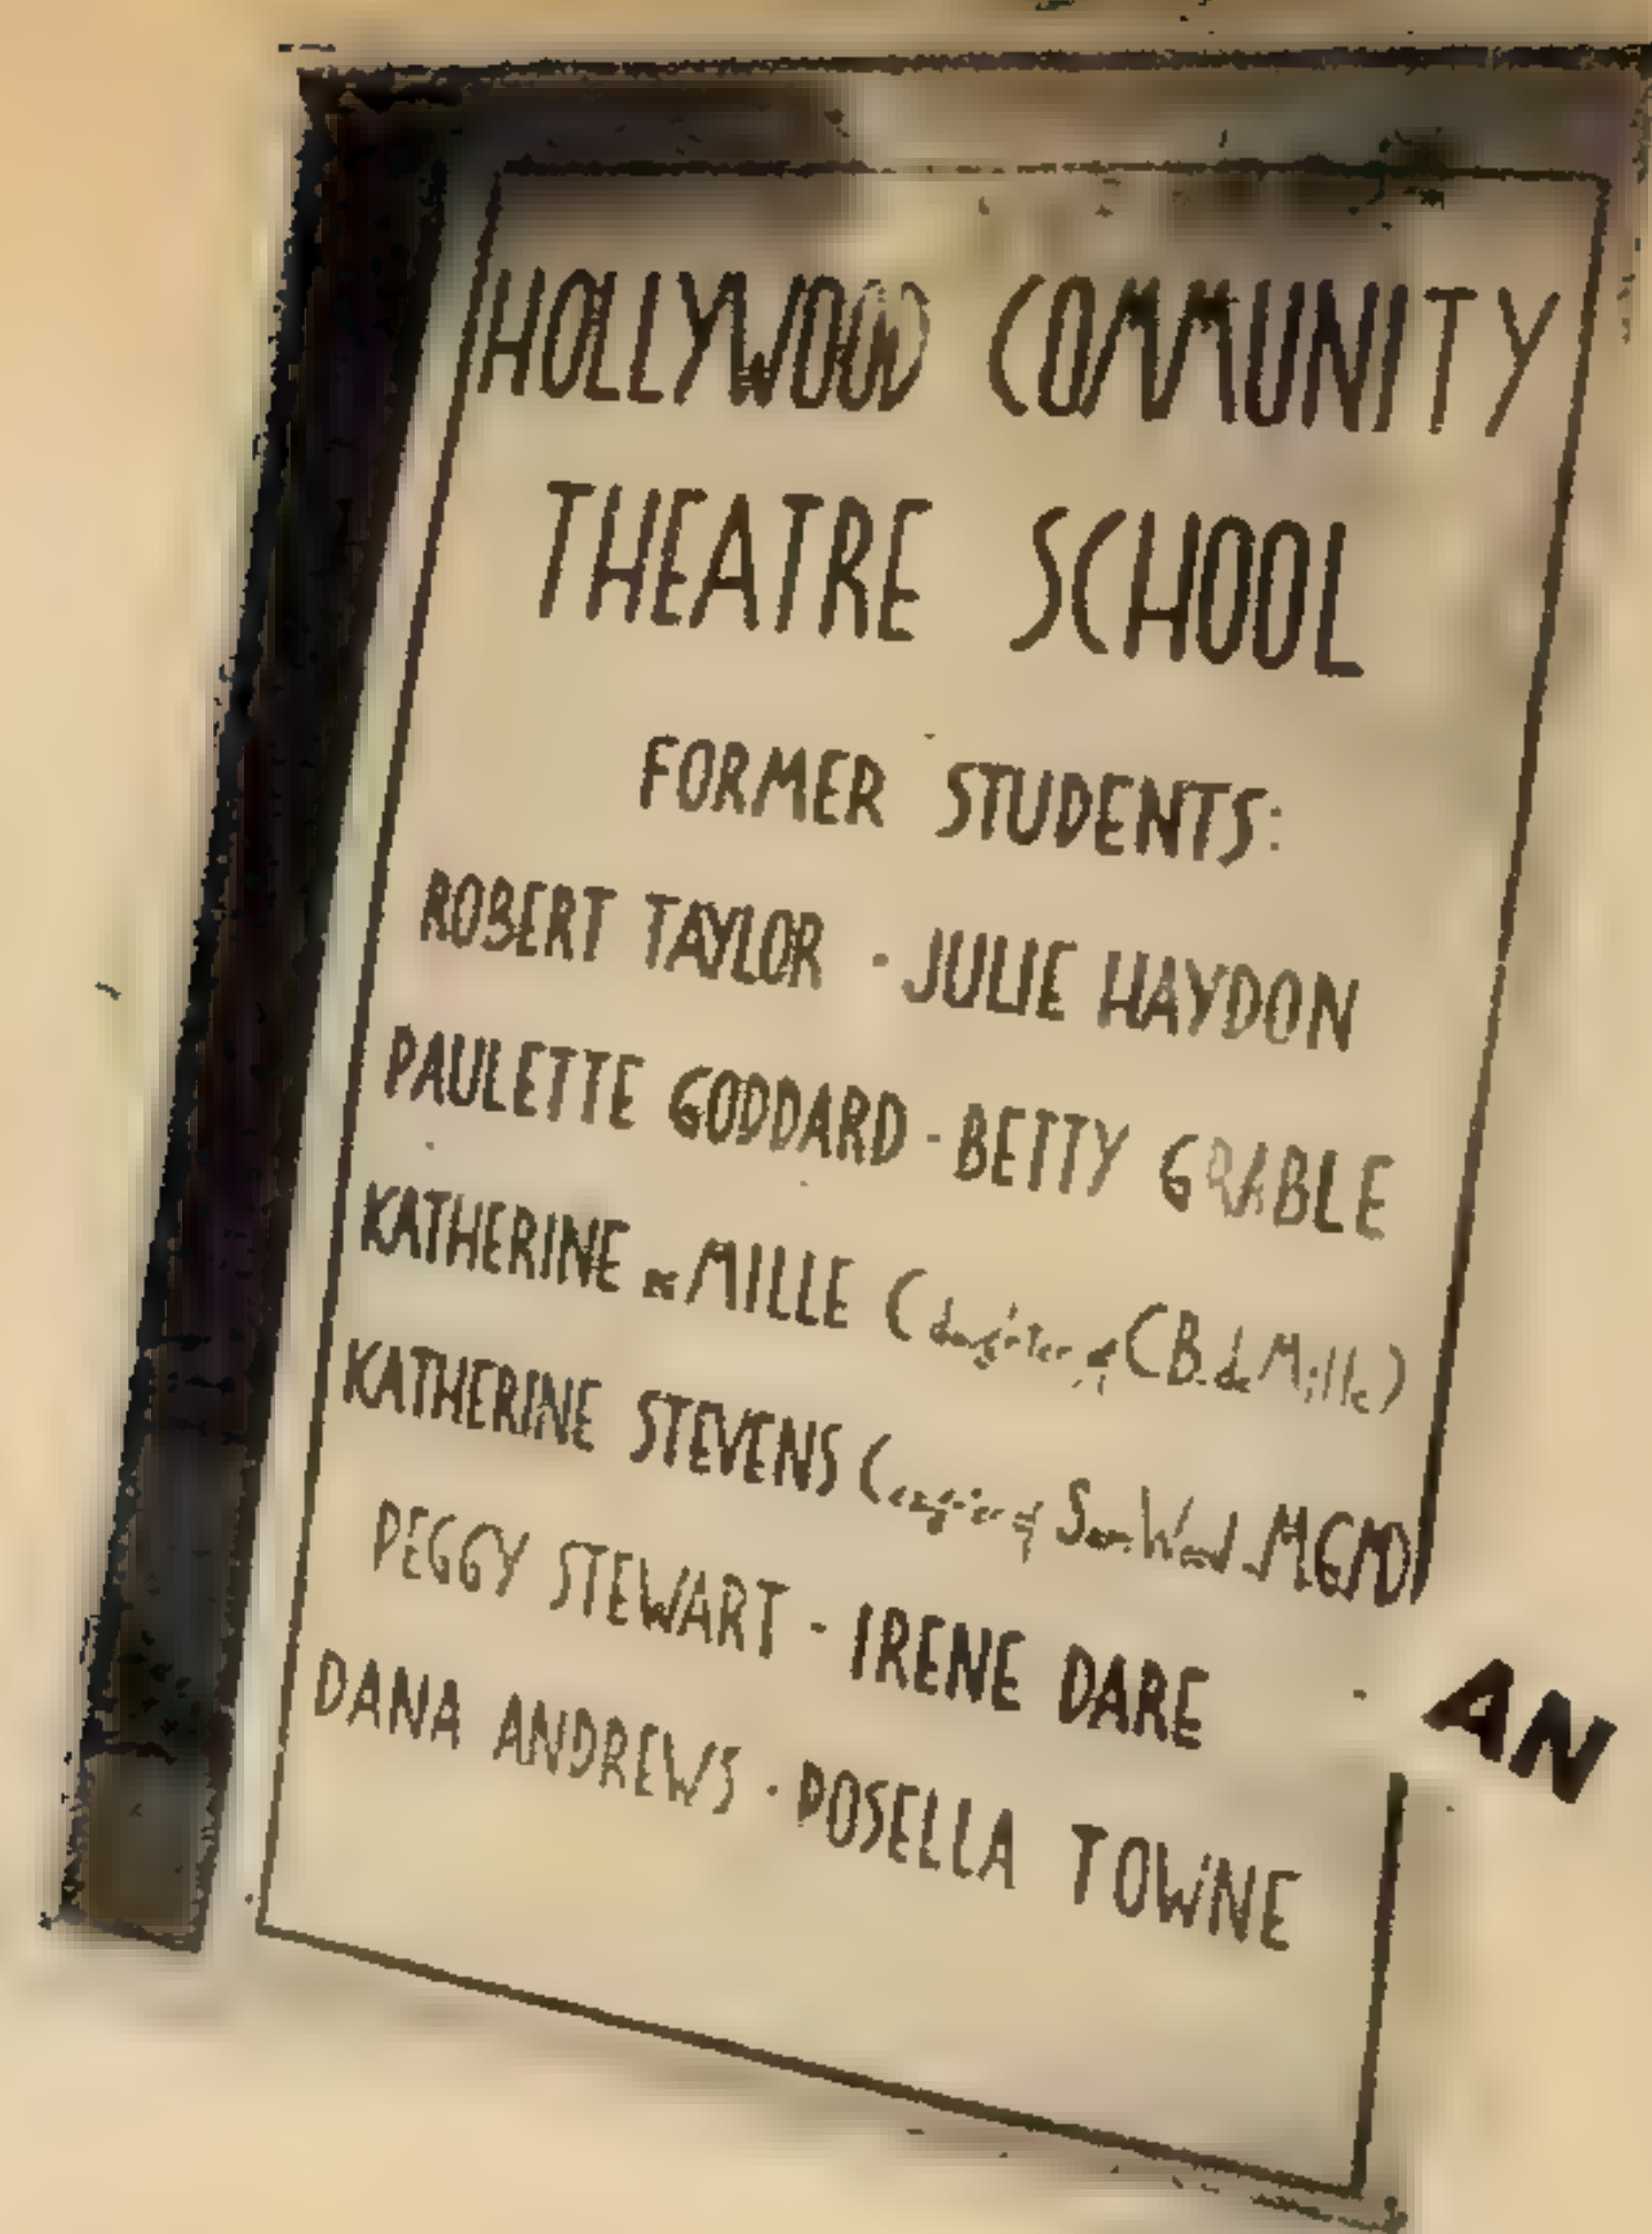 HOLLYWOOD COMMUNITY
THEATRE SCHOOL
FORMER STUDENTS:
ROBERT TAYLOR - JULIE HAYDON
PAULETTE GODDARD - BETTY GRABLE
KATHERINE de MILLE (daughter of C.B. de Mille)
KATHERINE STEVENS (daughter of Sam Wood - MGM)
PEGGY STEWART - IRENE DARE
DANA ANDREWS - ROSELLA TOWNE
AN